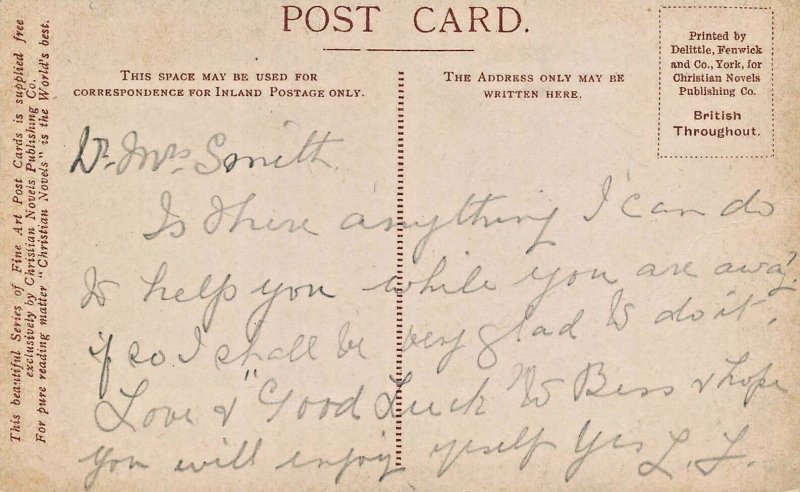 POST CARD.
THIS SPACE MAY BE USED FOR
CORRESPONDENCE FOR INLAND POSTAGE ONLY.
THE ADDRESS ONLY MAY BE
WRITTEN HERE.
Printed by
Delittle, Fenwick
and Co., York, for
Christian Novels
Publishing Co.
British
Throughout.
This beautiful Series of Fine Art Post Cards is supplied free
exclusively by Christian Novels Publishing Co.
For pure reading matter "Christian Novels" is the World's best.
Dr. Mrs Smith
Is there anything I can do
to help you while you are away?
if so I shall be very glad to do it.
Love & "Good Luck" to Bess & hope
you will enjoy yrself Yrs L. L.